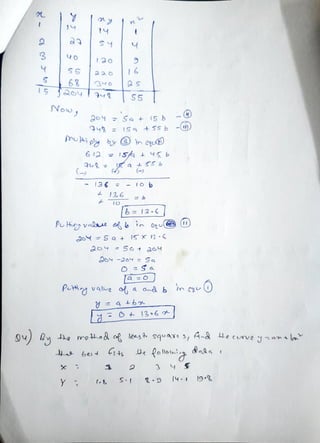 x y xy x²
1 14 14 1
2 27 54 4
3 40 120 9
4 55 220 16
5 68 340 25
15 204 748 55
Now,
204 = 5a + 15 b
748 = 15a + 55 b
Multiply by ③ in
612 = 15a + 45 b
748 = 15a + 55 b
(-) (-) (-)
- 136 = - 10 b
136 / 10 = b
b = 13.6
Putting value of b in equ
204 = 5a + 15 x 13.6
204 = 5a + 204
204 - 204 = 5a
0 = 5a
a = 0
Putting value of a and b in equ ①
y = a + bx
y = 0 + 13.6 x
Q4) By the method of least squares, find the curve y = ax + bx²
that best fits the following data :
x : 1 2 3 4 5
y : 1.8 5.1 8.9 14.1 19.8